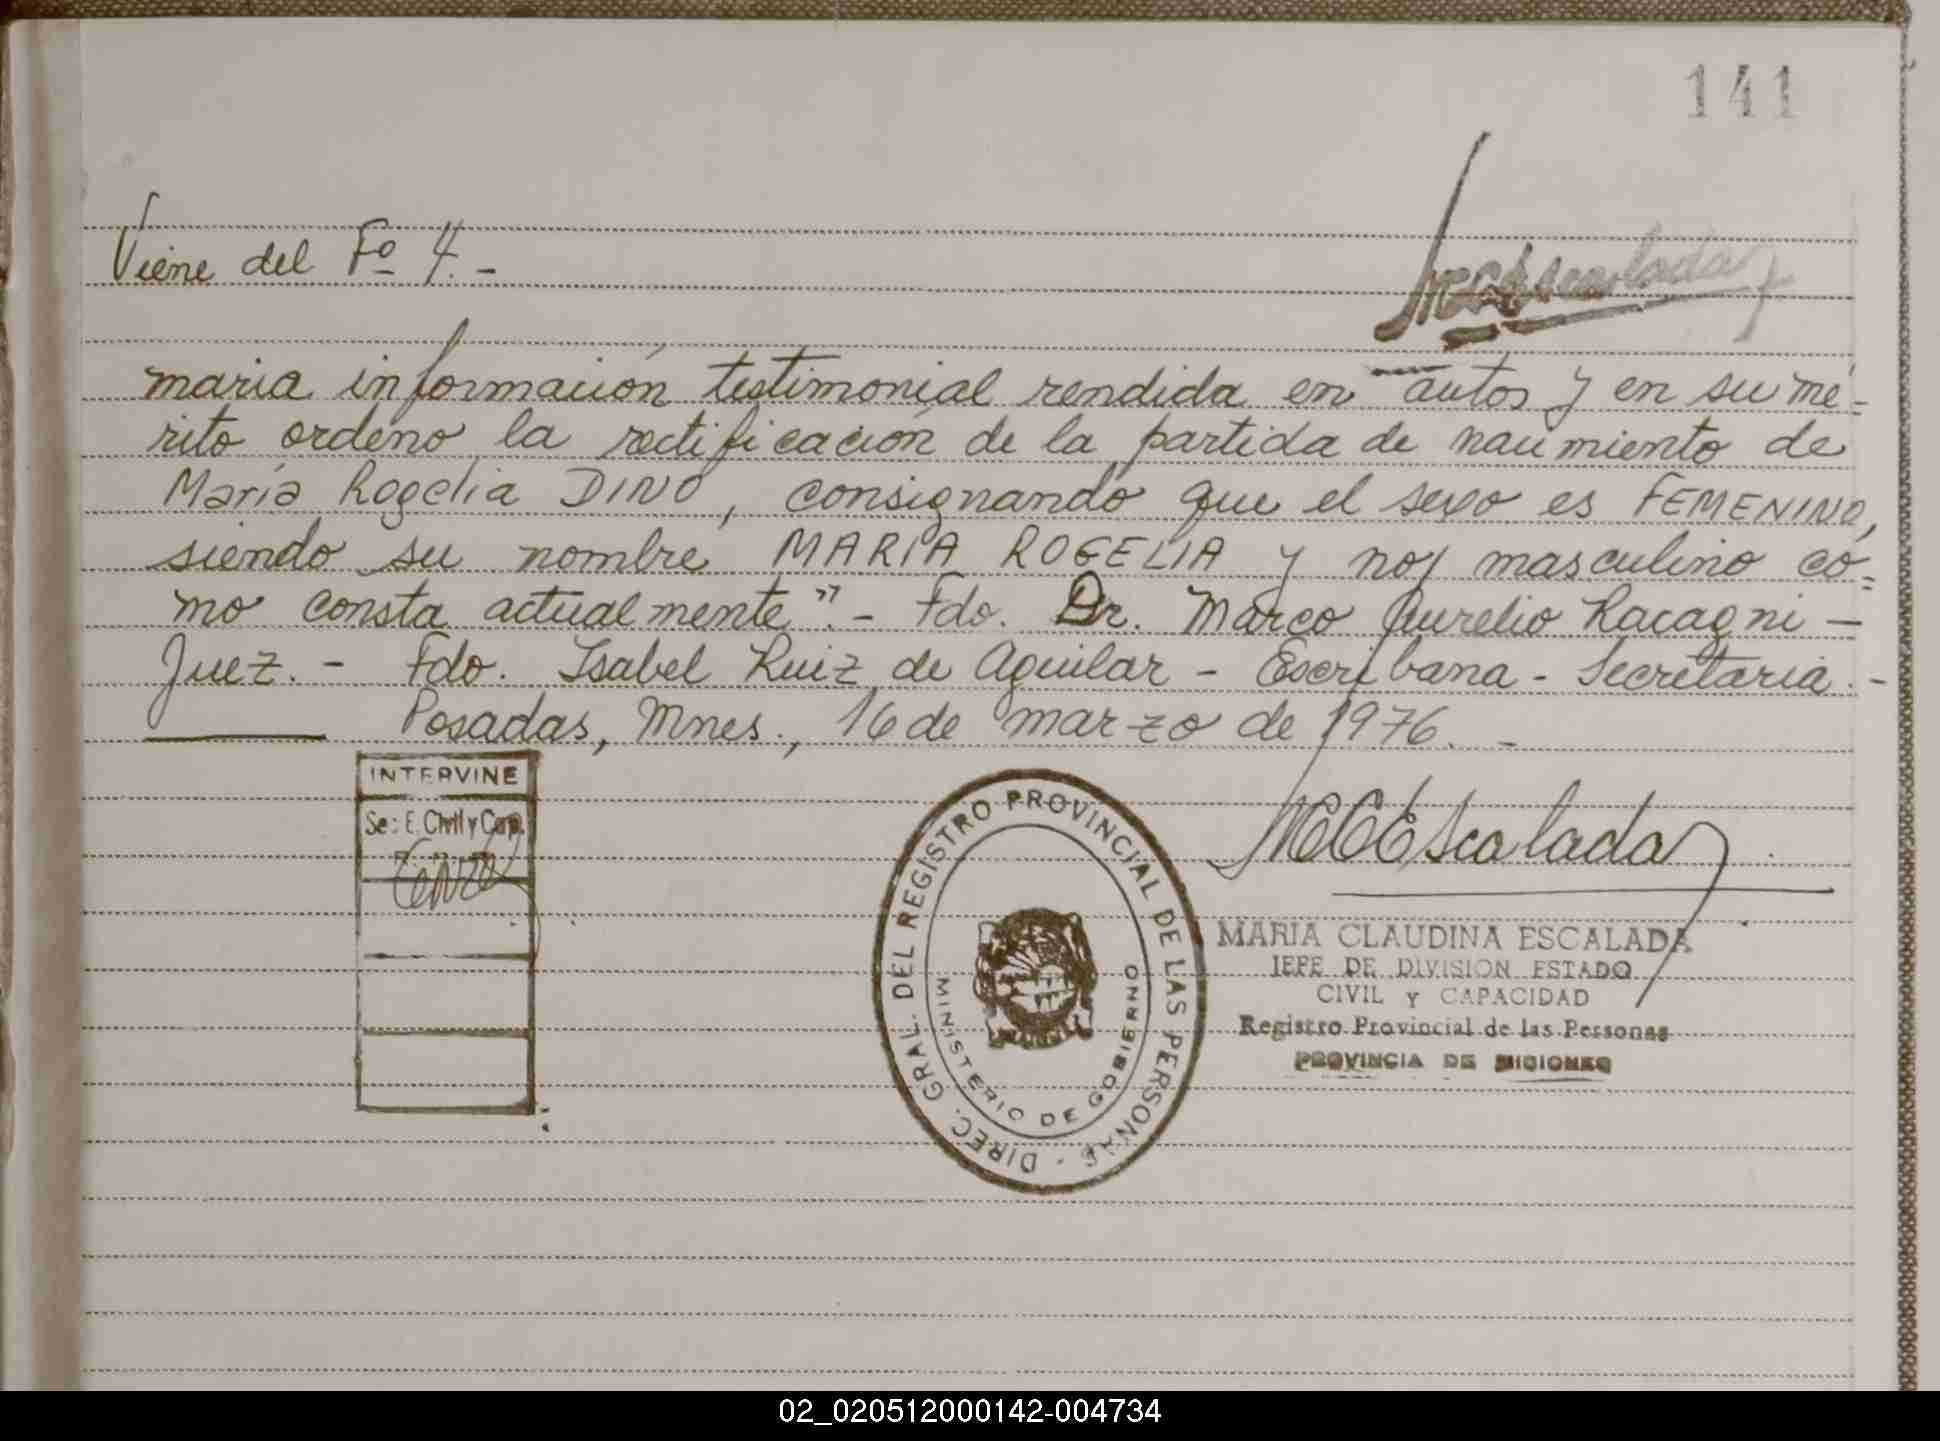 141
Viene del Fº 4.-
MCEscalada
maria información testimonial rendida en autos y en su mé-
rito ordeno la rectificación de la partida de nacimiento de
María Rogelia DINO, consignando que el sexo es FEMENINO,
siendo su nombre MARIA ROGELIA y no masculino co=
mo consta actualmente".- Fdo. Dr. Marco Aurelio Racagni -
Juez. - Fdo. Isabel Ruiz de Aguilar - Escribana - Secretaria.-
Posadas, Mnes., 16 de marzo de 1976. -
INTERVINE
Se: E. Civil y Cap.
DIREC. GRAL. DEL REGISTRO PROVINCIAL DE LAS PERSONAS -
MINISTERIO DE GOBIERNO
MCEscalada
MARIA CLAUDINA ESCALADA
JEFE DE DIVISION ESTADO
CIVIL Y CAPACIDAD
Registro Provincial de las Personas
PROVINCIA DE MISIONES
02_020512000142-004734